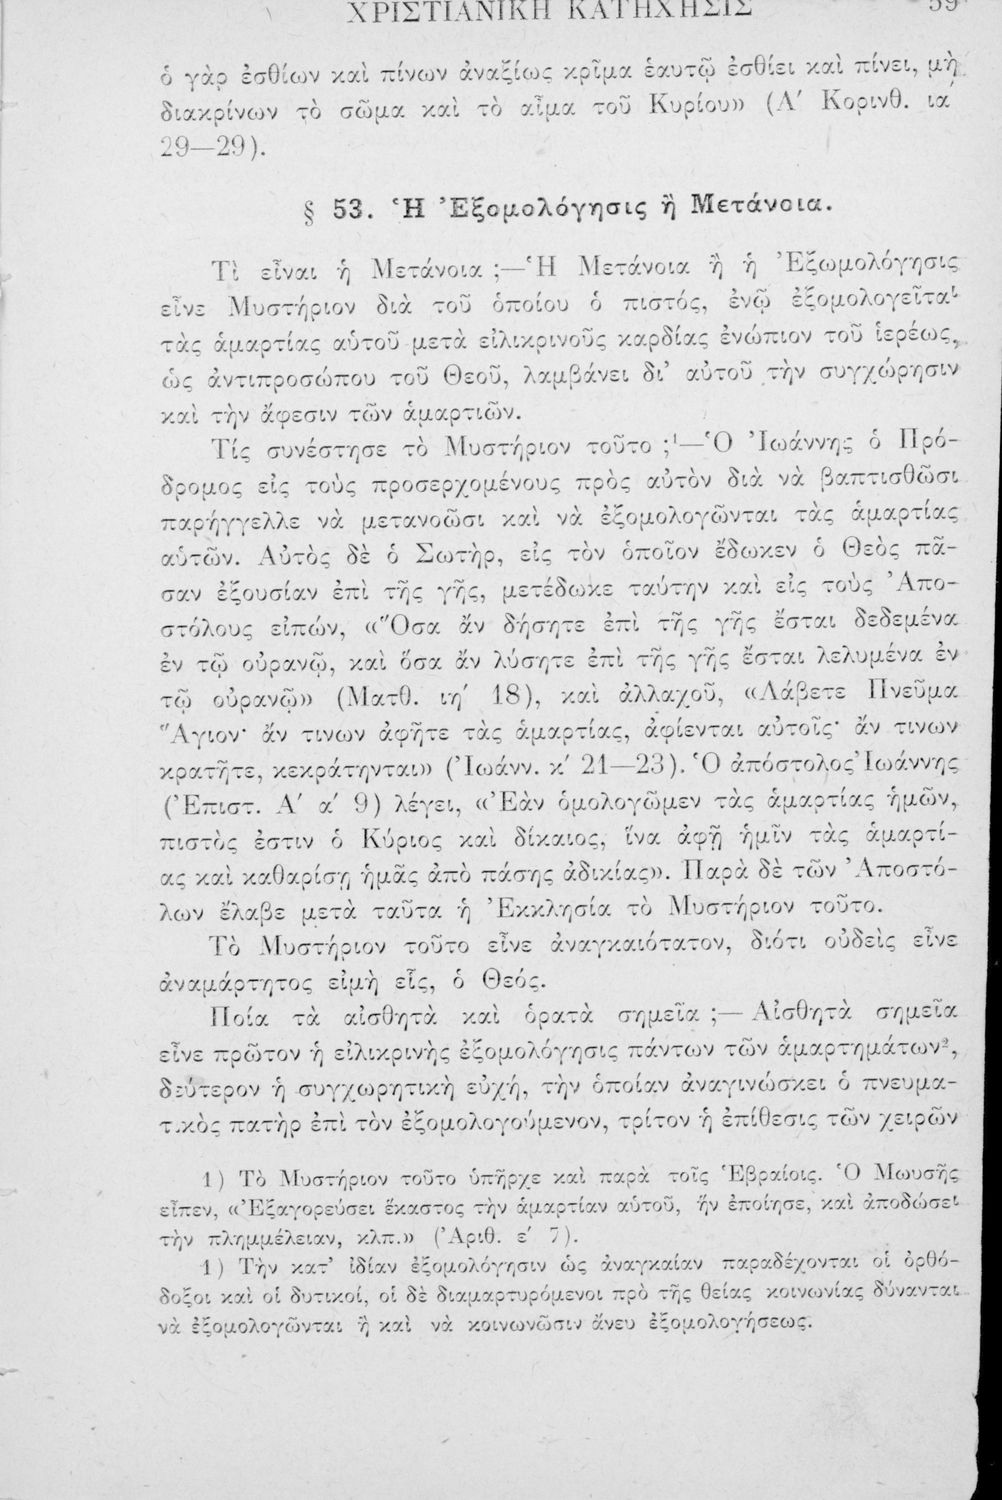 ΧΡΙΣΤΙΑΝΙΚΗ ΚΑΤΗΧΗΣΙΣ 59
ὁ γὰρ ἐσθίων καὶ πίνων ἀναξίως κρῖμα ἑαυτῷ ἐσθίει καὶ πίνει, μὴ
διακρίνων τὸ σῶμα καὶ τὸ αἷμα τοῦ Κυρίου» (Α′ Κορινθ. ια′
29—29).
§ 53. Ἡ Ἐξομολόγησις ἢ Μετάνοια.
Τὶ εἶναι ἡ Μετάνοια ;—Ἡ Μετάνοια ἢ ἡ Ἐξωμολόγησις
εἶνε Μυστήριον διὰ τοῦ ὁποίου ὁ πιστός, ἐνῷ ἐξομολογεῖται
τὰς ἁμαρτίας αὑτοῦ μετὰ εἰλικρινοῦς καρδίας ἐνώπιον τοῦ ἱερέως,
ὡς ἀντιπροσώπου τοῦ Θεοῦ, λαμβάνει δι’ αὐτοῦ τὴν συγχώρησιν
καὶ τὴν ἄφεσιν τῶν ἁμαρτιῶν.
Τίς συνέστησε τὸ Μυστήριον τοῦτο ;¹—Ὁ Ἰωάννης ὁ Πρό-
δρομος εἰς τοὺς προσερχομένους πρὸς αὐτὸν διὰ νὰ βαπτισθῶσι
παρήγγελλε νὰ μετανοῶσι καὶ νὰ ἐξομολογῶνται τὰς ἁμαρτίας
αὑτῶν. Αὐτὸς δὲ ὁ Σωτὴρ, εἰς τὸν ὁποῖον ἔδωκεν ὁ Θεὸς πᾶ-
σαν ἐξουσίαν ἐπὶ τῆς γῆς, μετέδωκε ταύτην καὶ εἰς τοὺς Ἀπο-
στόλους εἰπών, «Ὅσα ἄν δήσητε ἐπὶ τῆς γῆς ἔσται δεδεμένα
ἐν τῷ οὐρανῷ, καὶ ὅσα ἄν λύσητε ἐπὶ τῆς γῆς ἔσται λελυμένα ἐν
τῷ οὐρανῷ» (Ματθ. ιη′ 18), καὶ ἀλλαχοῦ, «Λάβετε Πνεῦμα
Ἅγιον· ἄν τινων ἀφῆτε τὰς ἁμαρτίας, ἀφίενται αὐτοῖς· ἄν τινων
κρατῆτε, κεκράτηνται» (Ἰωάνν. κ′ 21—23). Ὁ ἀπόστολος Ἰωάννης
(Ἐπιστ. Α′ α′ 9) λέγει, «Ἐὰν ὁμολογῶμεν τὰς ἁμαρτίας ἡμῶν,
πιστὸς ἐστιν ὁ Κύριος καὶ δίκαιος, ἵνα ἀφῇ ἡμῖν τὰς ἁμαρτί-
ας καὶ καθαρίσῃ ἡμᾶς ἀπὸ πάσης ἀδικίας». Παρὰ δὲ τῶν Ἀποστό-
λων ἔλαβε μετὰ ταῦτα ἡ Ἐκκλησία τὸ Μυστήριον τοῦτο.
Τὸ Μυστήριον τοῦτο εἶνε ἀναγκαιότατον, διότι οὐδεὶς εἶνε
ἀναμάρτητος εἰμὴ εἷς, ὁ Θεός.
Ποία τὰ αἰσθητὰ καὶ ὁρατὰ σημεῖα ;— Αἰσθητὰ σημεῖα
εἶνε πρῶτον ἡ εἰλικρινὴς ἐξομολόγησις πάντων τῶν ἁμαρτημάτων²,
δεύτερον ἡ συγχωρητικὴ εὐχή, τὴν ὁποίαν ἀναγινώσκει ὁ πνευμα-
τικὸς πατὴρ ἐπὶ τὸν ἐξομολογούμενον, τρίτον ἡ ἐπίθεσις τῶν χειρῶν
1) Τὸ Μυστήριον τοῦτο ὑπῆρχε καὶ παρὰ τοῖς Ἑβραίοις. Ὁ Μωυσῆς
εἶπεν, «Ἐξαγορεύσει ἕκαστος τὴν ἁμαρτίαν αὑτοῦ, ἥν ἐποίησε, καὶ ἀποδώσει
τὴν πλημμέλειαν, κλπ.» (Ἀριθ. ε′ 7).
1) Τὴν κατ’ ἰδίαν ἐξομολόγησιν ὡς ἀναγκαίαν παραδέχονται οἱ ὀρθό-
δοξοι καὶ οἱ δυτικοί, οἱ δὲ διαμαρτυρόμενοι πρὸ τῆς θείας κοινωνίας δύνανται
νὰ ἐξομολογῶνται ἢ καὶ νὰ κοινωνῶσιν ἄνευ ἐξομολογήσεως.